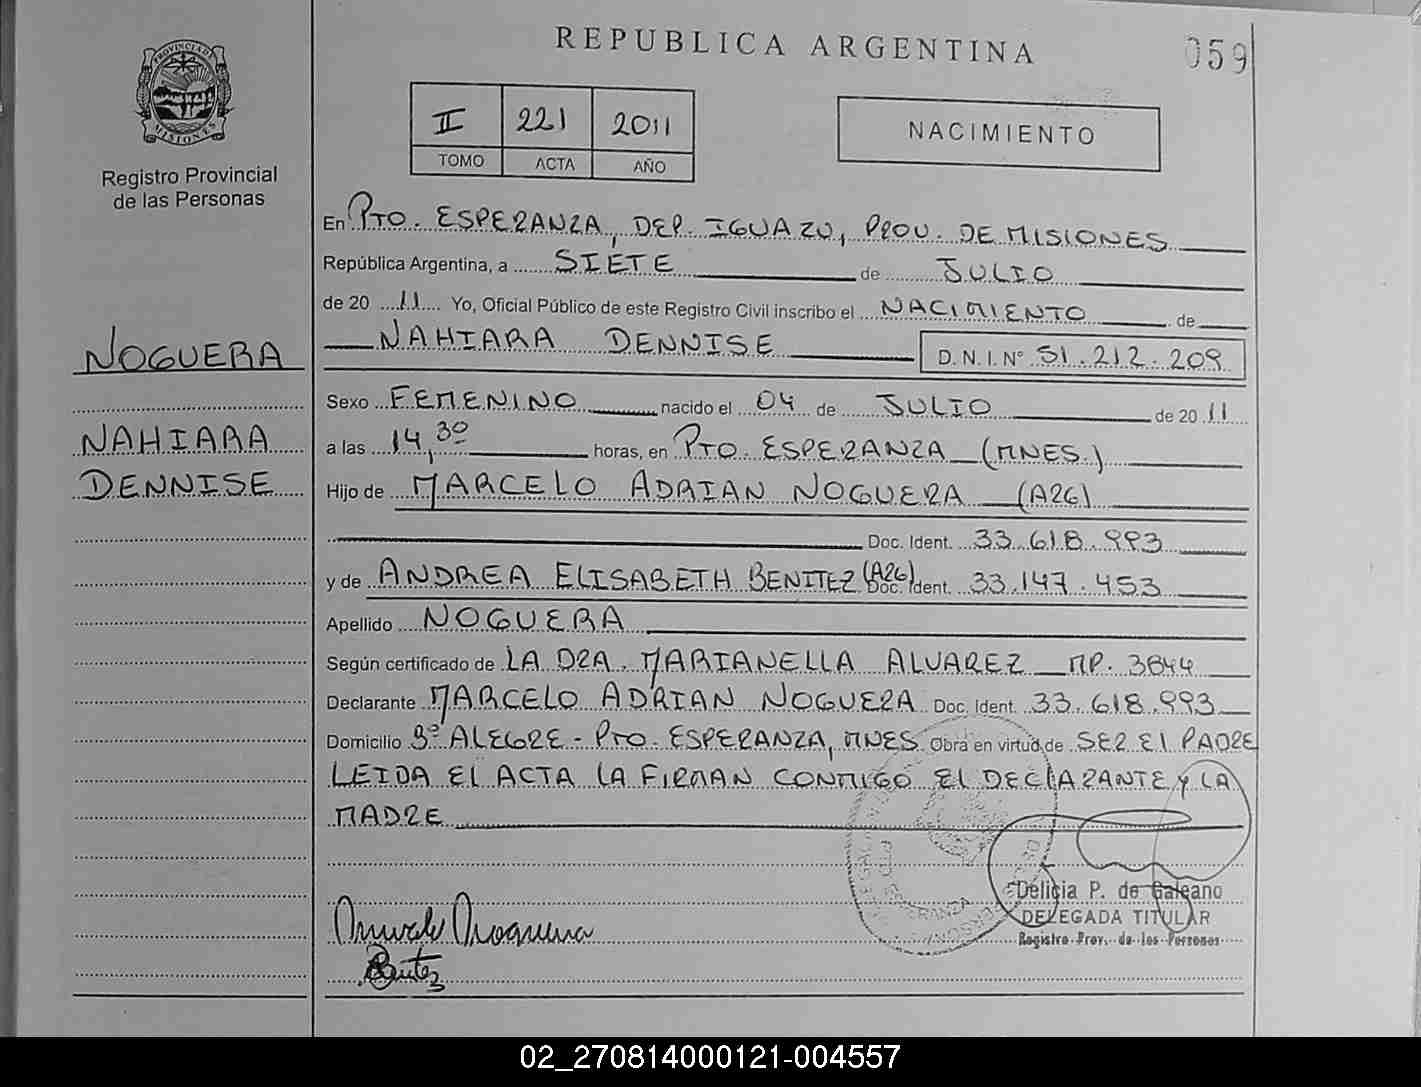 REPUBLICA ARGENTINA
059
PROVINCIA D MISIONES
Registro Provincial
de las Personas
II 221 2011
TOMO ACTA AÑO
NACIMIENTO
En PTO. ESPERANZA, DEP. IGUAZU, PROV. DE MISIONES
República Argentina, a SIETE de JULIO
de 20 11 Yo, Oficial Público de este Registro Civil inscribo el NACIMIENTO de
NAHIARA DENNISE D.N.I.Nº 51.212.209
NOGUERA
NAHIARA
DENNISE
Sexo FEMENINO nacido el 04 de JULIO de 20 11
a las 14,30 horas, en PTO. ESPERANZA (MNES.)
Hijo de MARCELO ADRIAN NOGUERA (ARG)
Doc. Ident. 33.618.993
y de ANDREA ELISABETH BENITEZ (ARG) Doc. Ident. 33.147.453
Apellido NOGUERA
Según certificado de LA DRA. MARIANELLA ALVAREZ MP. 3844
Declarante MARCELO ADRIAN NOGUERA Doc. Ident. 33.618.993
Domicilio Bº ALEGRE - PTO. ESPERANZA, MNES. Obra en virtud de SER El PADRE
LEIDA El ACTA LA FIRMAN CONMIGO El DEClARANTE y LA
MADRE
PTO ESPERANZA
Delicia P. de Galeano
DELEGADA TITULAR
Registro Prov. de las Personas
Noguera
Benitez
02_270814000121-004557